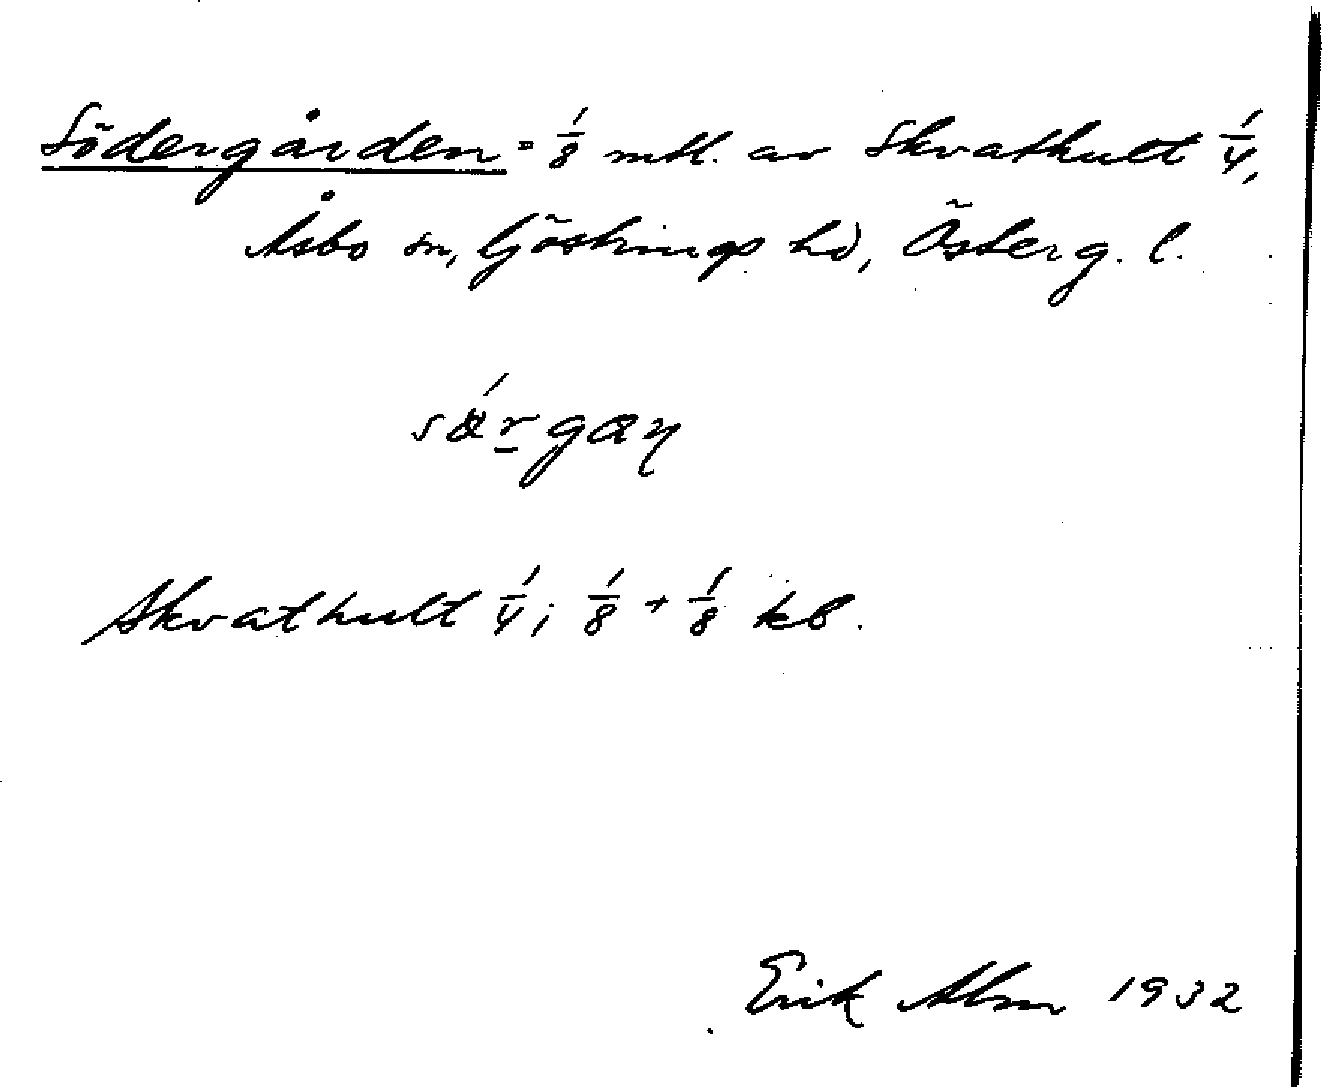 Södergården = 1/8 mtl. av Skvathult 1/4,
Åsbo sn, Göstrings hd, Österg. l.
Skvathult 1/4; 1/8 + 1/8 kb.
Erik Alm 1932